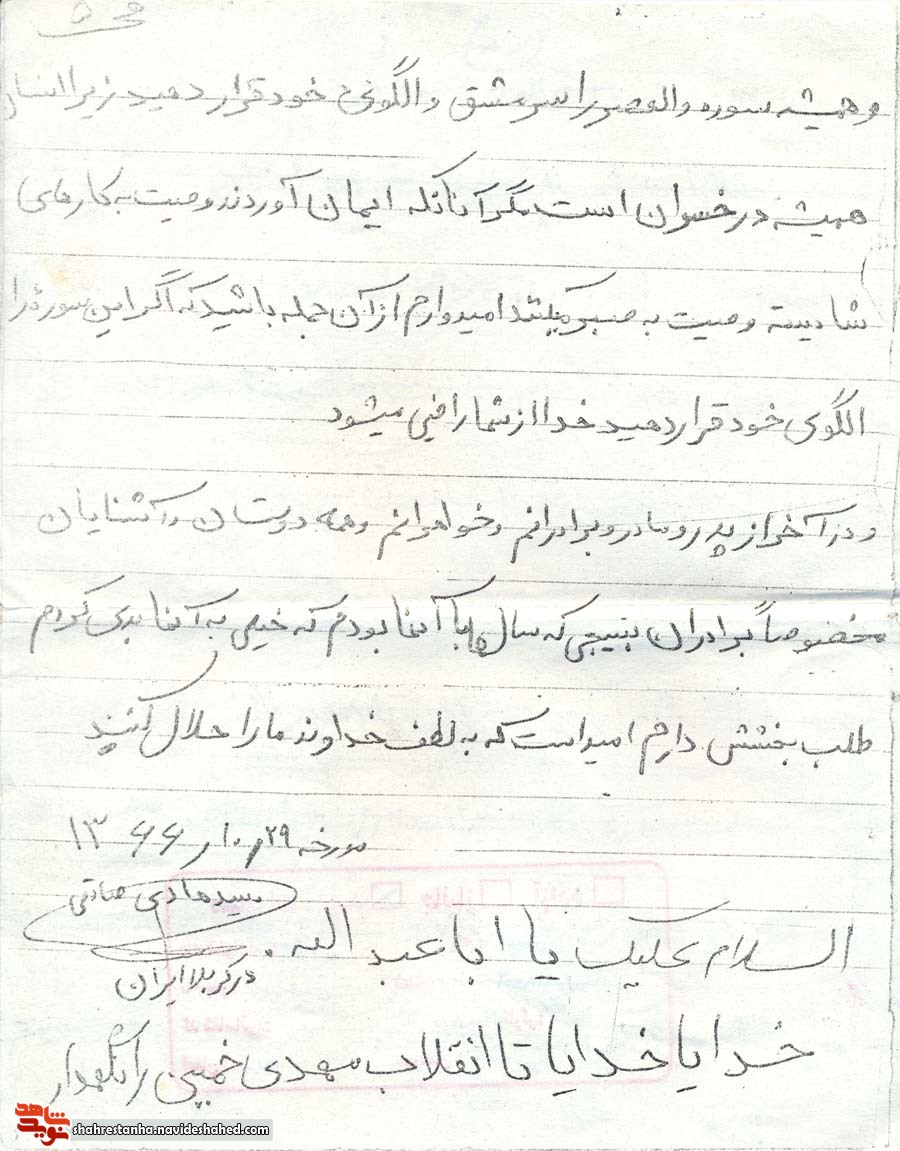 ص ۵
و همیشه سوره والعصر را سرمشق و الگوی خود قرار دهید زیرا انسان
همیشه در خسران است مگر آنانکه ایمان آوردند وصیت به کارهای
شایسته وصیت به صبر میکنند امیدوارم از آن جمله باشید که اگر این سوره را
الگوی خود قرار دهید خدا از شما راضی میشود
و در آخر از پدر و مادر و برادرانم و خواهرانم و همه دوستان و آشنایان
مخصوصاً برادران بسیجی که سال با آنها بودم که خیلی به آنها بدی کردم
طلب بخشش دارم امید است که به لطف خداوند ما را حلال کنید
مورخه ۲۹ر۱۰ر ۱۳۶۶
سید هادی صادقی
السلام علیک یا ابا عبد الله .
در کربلا ایران
خدایا خدایا تا انقلاب مهدی خمینی را نگهدار
نوید شاهد
shahrestanha.navideshahed.com